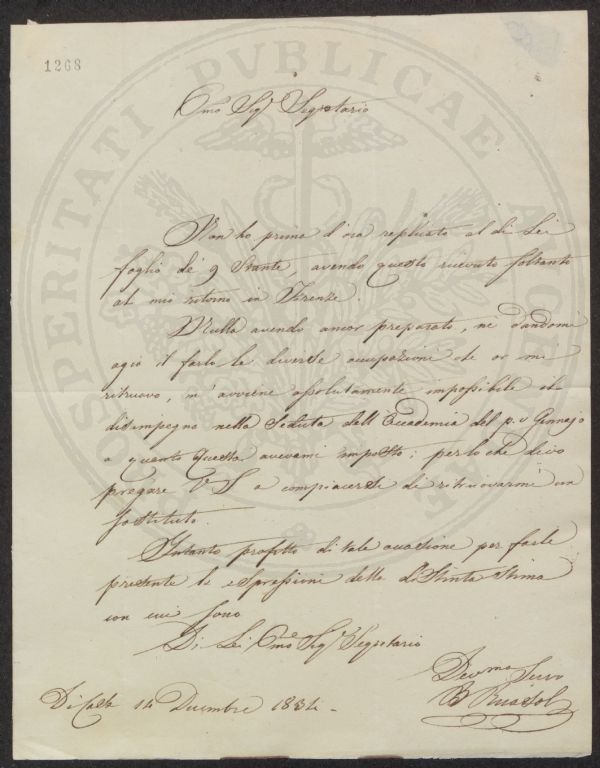 1268
PROSPERITATI PVBLICAE AVGENDAE
Ornmo Sigr Segretario
Non ho prima d'ora replicato al di Lei
foglio de' 9 Stante, avendo questo ricevuto soltanto
al mio ritorno in Firenze.
Nulla avendo ancor preparato, nè dandomi
agio il farlo le diverse occupazioni che or mi
ritruovo, m'avviene assolutamente impossibile il
disimpegno nella Seduta dell'Accademia del p. v. Gennajo
a quanto questa avevami imposto; perlochè devo
pregare V S a compiacersi di ritruovarmi un
sostituto.
Intanto profitto di tale occasione per farle
presente le espressioni della distinta stima
con cui sono
Di Lei Ornmo Sigr Segretario
Devmo Servo
Di Casa 14 Decembre 1834.